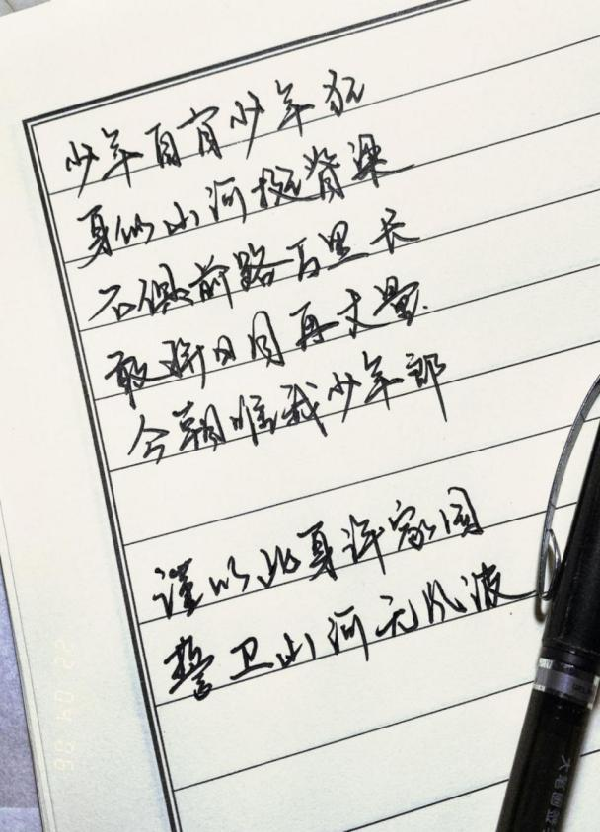 少年自有少年狂
身似山河挺脊梁
不惧前路万里长
敢将日月再丈量
今朝唯我少年郎
谨以此身许家国
誓卫山河无风波